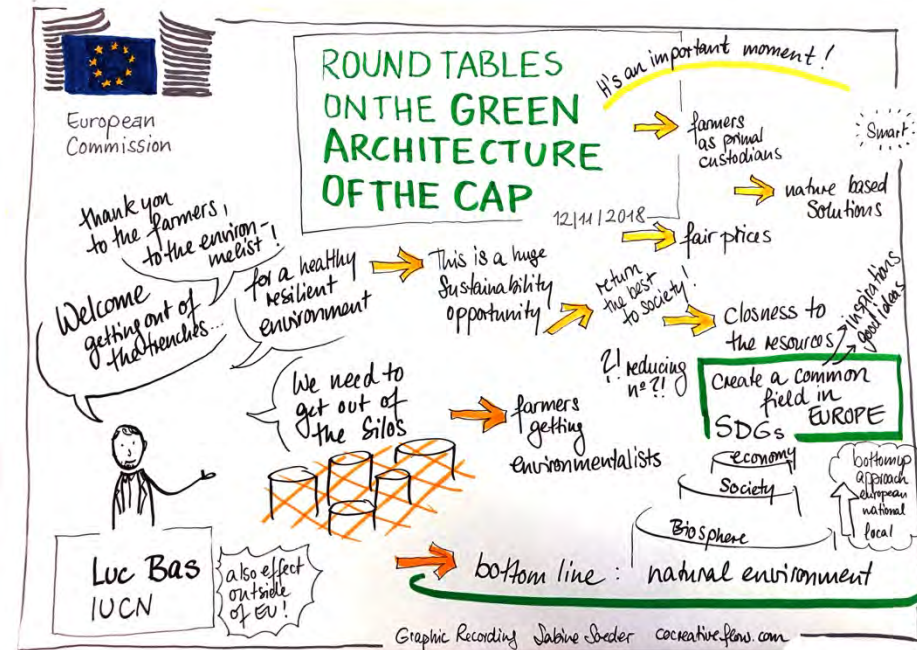 European
Commission
ROUND TABLES
ON THE GREEN
ARCHITECTURE
OF THE CAP
12/11/2018
It's an important moment!
farmers
as primal
custodians
Smart
nature based
Solutions
fair prices
thank you
to the farmers,
to the environ-
melist!
Welcome
getting out of
the trenches...
for a healthy
resilient
environment
This is a huge
Sustainability
opportunity
return
the best
to society!
Closness to
the resources
inspirations
good ideas
?! reducing
nº ?!
We need to
get out of
the Silos
farmers
getting
environmentalists
Create a common
field in
EUROPE
SDGs
economy
Society
Biosphere
bottom up
approach
european
national
local
Luc Bas
IUCN
also effect
outside
of EU!
bottom line: natural environment
Graphic Recording Sabine Soeder cocreativeflow.com